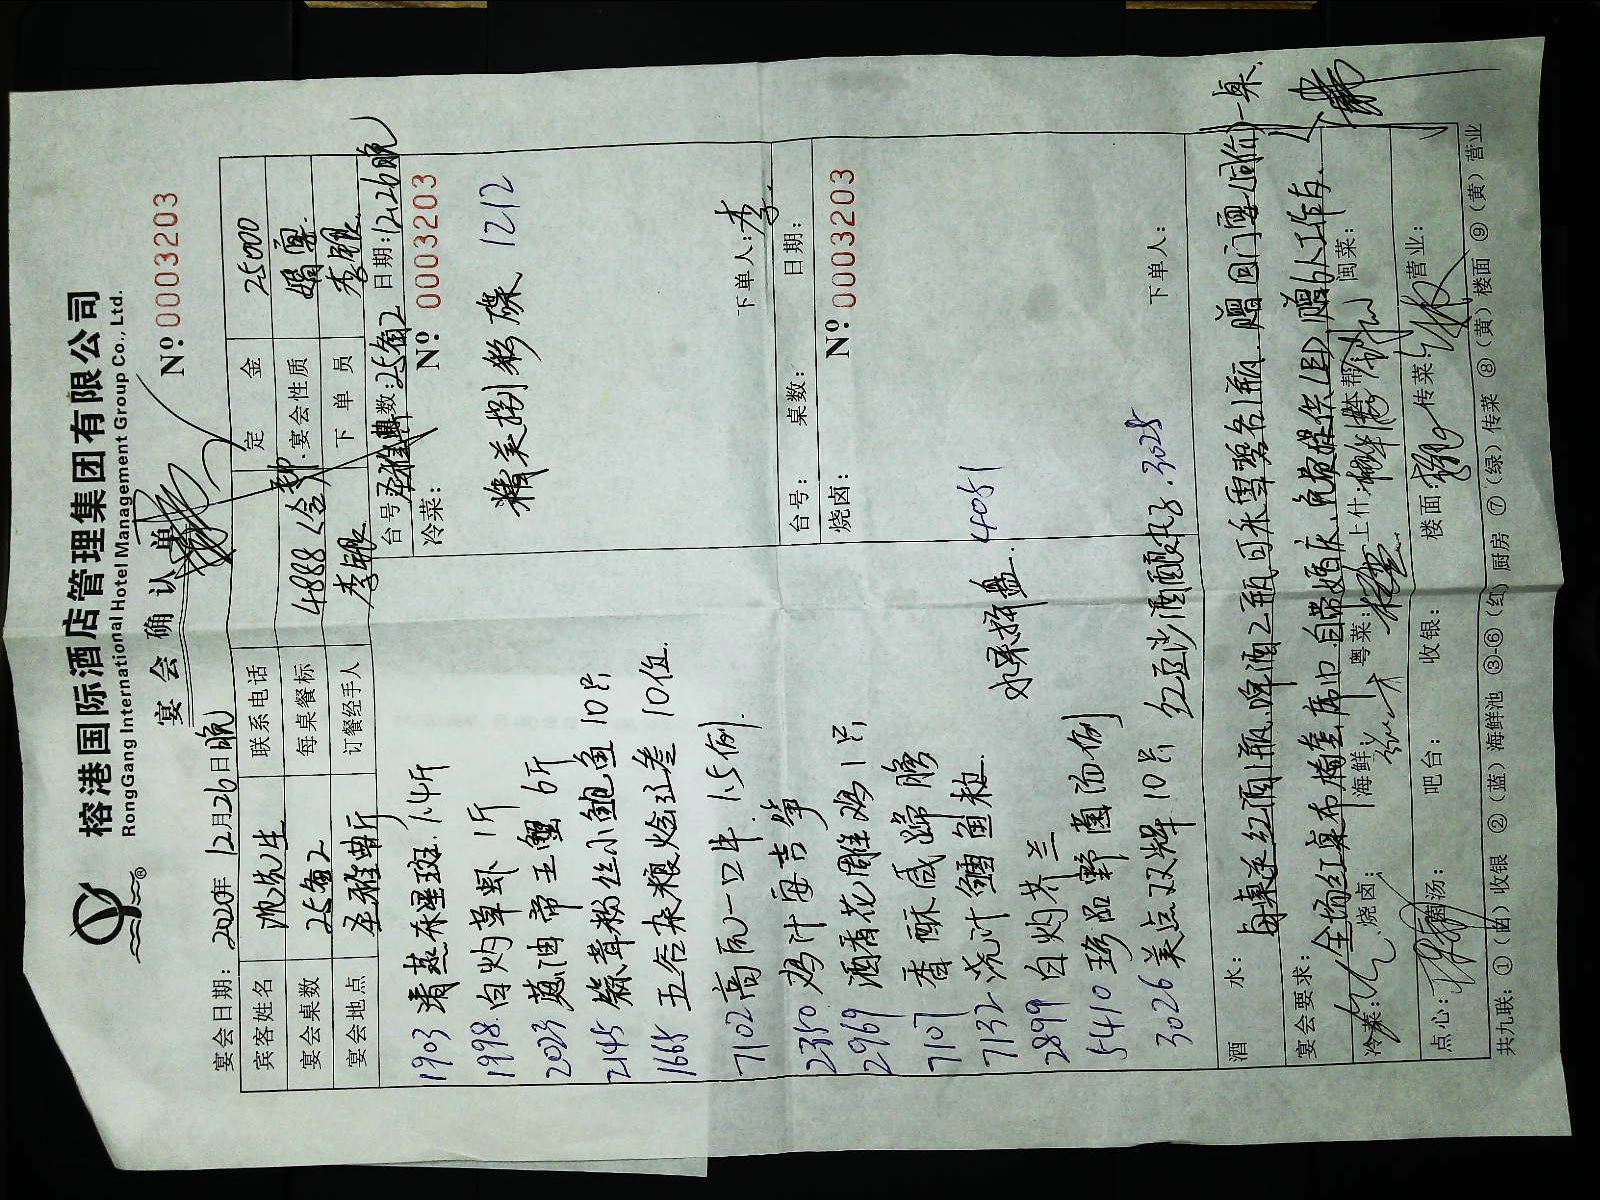 榕港国际酒店管理集团有限公司
RongGang International Hotel Management Group Co., Ltd.
宴会确认单
№ 0003203
宴会日期: 2020年 12月26日晚
宾客姓名 沈先生 联系电话 定金 25000
宴会桌数 25备2 每桌餐标 4888 宴会性质 婚宴
宴会地点 订餐经手人 李银 下单员 李银
台号: 桌数: 25备2 日期: 12.26晚
冷菜: № 0003203
精美捌彩碟 1212
下单人: 李
1903 清蒸东星斑 1.4斤
1998 白灼草虾 1斤
2023 葱油帝王蟹 6斤
2145 蒜茸粉丝小鲍鱼 10只
1665 五谷杂粮烩辽参 10位
7102 高瓦一口牛 1.5例
2350 鸡汁安吉笋
2969 酒香花雕鸡 1只
7107 香酥咸蹄膀
7132 浇汁鳕鱼粒
2899 白灼芥兰
5410 珍品野菌汤例
3026 美点双辉 10只
水果拼盘 4051
红豆沙酒酿丸子 3025
台号: 桌数: 日期:
烧卤: № 0003203
下单人:
酒水: 每桌送红酒1瓶 啤酒2瓶 可乐雪碧各1瓶 赠回门宴(同价)一桌
宴会要求: 全场红桌布椅套 席口 自带婚庆 免费提供LED 赠私人工作房
冷菜: 烧卤: 海鲜 粤菜: 上什: 本帮 闽菜:
点心: 汤: 吧台: 收银: 楼面: 传菜: 营业:
共九联: ①(白)收银 ②(蓝)海鲜池 ③-⑥(红)厨房 ⑦(绿)传菜 ⑧(黄)楼面 ⑨(黄)营业